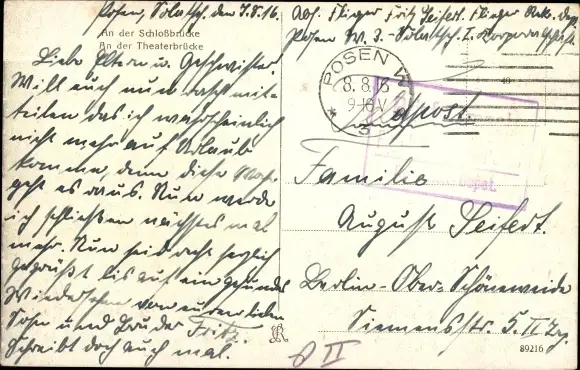 Posen, Solatsch, den 7.8.16.
An der Schloßbrücke
An der Theaterbrücke
Liebe Eltern u. Geschwister.
Will euch nun rasch mit-
teilen das ich wahrscheinlich
nicht mehr auf Urlaub
komme, denn diese
geht es raus. Nun werde
ich schließen nächstes mal
mehr. Nun seid recht herzlich
gegrüßt bis auf ein gesundes
Wiedersehen von eurem lieben
Sohn und Bruder Fritz.
Schreibt doch auch mal.
Abs. Flieger Fritz Seifert. Flieger
Posen W. 3. - Solatsch. 2. Korporalschaft.
POSEN W
8.8.16
9-10 V
* 3
Feldpost.
Familie
August Seifert.
Berlin-Ober-Schöneweide
Siemensstr. 5. II
89216